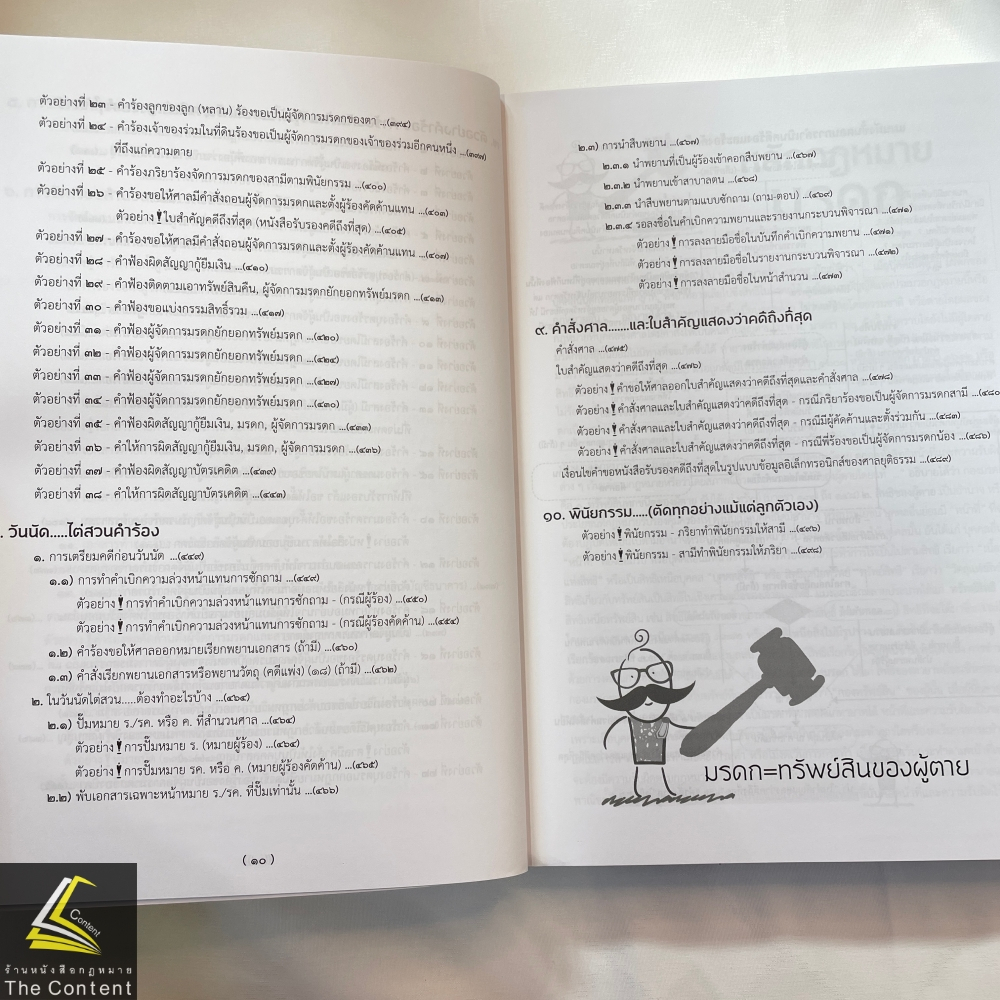 ตัวอย่างที่ ๒๓ - คำร้องลูกของลูก (หลาน) ร้องขอเป็นผู้จัดการมรดกของตา ...(๓๙๔)
ตัวอย่างที่ ๒๔ - คำร้องเจ้าของร่วมในที่ดินร้องขอเป็นผู้จัดการมรดกของเจ้าของร่วมอีกคนหนึ่ง ...(๓๙๗)
ที่ถึงแก่ความตาย
ตัวอย่างที่ ๒๕ - คำร้องภริยาร้องจัดการมรดกของสามีตามพินัยกรรม ...(๔๐๐)
ตัวอย่างที่ ๒๖ - คำร้องขอให้ศาลมีคำสั่งถอนผู้จัดการมรดกและตั้งผู้ร้องคัดค้านแทน ...(๔๐๓)
ตัวอย่าง ใบสำคัญคดีถึงที่สุด (หนังสือรับรองคดีถึงที่สุด) ...(๔๐๕)
ตัวอย่างที่ ๒๗ - คำร้องขอให้ศาลมีคำสั่งถอนผู้จัดการมรดกและตั้งผู้ร้องคัดค้านแทน ...(๔๐๗)
ตัวอย่างที่ ๒๘ - คำฟ้องผิดสัญญากู้ยืมเงิน ...(๔๑๐)
ตัวอย่างที่ ๒๙ - คำฟ้องติดตามเอาทรัพย์สินคืน, ผู้จัดการมรดกยักยอกทรัพย์มรดก ...(๔๑๓)
ตัวอย่างที่ ๓๐ - คำฟ้องขอแบ่งกรรมสิทธิ์รวม ...(๔๑๗)
ตัวอย่างที่ ๓๑ - คำฟ้องผู้จัดการมรดกยักยอกทรัพย์มรดก ...(๔๒๐)
ตัวอย่างที่ ๓๒ - คำฟ้องผู้จัดการมรดกยักยอกทรัพย์มรดก ...(๔๒๔)
ตัวอย่างที่ ๓๓ - คำฟ้องผู้จัดการมรดกยักยอกทรัพย์มรดก ...(๔๒๗)
ตัวอย่างที่ ๓๔ - คำฟ้องผู้จัดการมรดกยักยอกทรัพย์มรดก ...(๔๓๐)
ตัวอย่างที่ ๓๕ - คำฟ้องผิดสัญญากู้ยืมเงิน, มรดก, ผู้จัดการมรดก ...(๔๓๓)
ตัวอย่างที่ ๓๖ - คำให้การผิดสัญญากู้ยืมเงิน, มรดก, ผู้จัดการมรดก ...(๔๓๖)
ตัวอย่างที่ ๓๗ - คำฟ้องผิดสัญญาบัตรเคดิต ...(๔๓๙)
ตัวอย่างที่ ๓๘ - คำให้การผิดสัญญาบัตรเคดิต ...(๔๔๓)
. วันนัด.....ไต่สวนคำร้อง
๑. การเตรียมคดีก่อนวันนัด ...(๔๔๙)
๑.๑) การทำคำเบิกความล่วงหน้าแทนการซักถาม ...(๔๔๙)
ตัวอย่าง การทำคำเบิกความล่วงหน้าแทนการซักถาม - (กรณีผู้ร้อง) ...(๔๕๐)
ตัวอย่าง การทำคำเบิกความล่วงหน้าแทนการซักถาม - (กรณีผู้ร้องคัดค้าน) ...(๔๕๔)
๑.๒) คำร้องขอให้ศาลออกหมายเรียกพยานเอกสาร (ถ้ามี) ...(๔๖๐)
๑.๓) คำสั่งเรียกพยานเอกสารหรือพยานวัตถุ (คดีแพ่ง) (๑๘) (ถ้ามี) ...(๔๖๒)
๒. ในวันนัดไต่สวน.....ต้องทำอะไรบ้าง ...(๔๖๔)
๒.๑) ปั๊มหมาย ร./รค. หรือ ค. ที่สำนวนศาล ...(๔๖๔)
ตัวอย่าง การปั๊มหมาย ร. (หมายผู้ร้อง) ...(๔๖๔)
ตัวอย่าง การปั๊มหมาย รค. หรือ ค. (หมายผู้ร้องคัดค้าน) ...(๔๖๕)
๒.๒) พับเอกสารเฉพาะหน้าหมาย ร./รค. ที่ปั๊มเท่านั้น ...(๔๖๖)
( ๑๐ )
๒.๓) การนำสืบพยาน ...(๔๖๗)
๒.๓.๑ นำพยานที่เป็นผู้ร้องเข้าคอกสืบพยาน ...(๔๖๗)
๒.๓.๒ นำพยานเข้าสาบาลตน ...(๔๖๘)
๒.๓.๓ นำสืบพยานตามแบบซักถาม (ถาม-ตอบ) ...(๔๖๙)
๒.๓.๔ รอลงชื่อในคำเบิกความพยานและรายงานกระบวนพิจารณา ...(๔๗๑)
ตัวอย่าง การลงลายมือชื่อในบันทึกคำเบิกความพยาน ...(๔๗๑)
ตัวอย่าง การลงลายมือชื่อในรายงานกระบวนพิจารณา ...(๔๗๒)
ตัวอย่าง การลงลายมือชื่อในหน้าสำนวน ...(๔๗๓)
๙. คำสั่งศาล.......และใบสำคัญแสดงว่าคดีถึงที่สุด
คำสั่งศาล ...(๔๗๕)
ใบสำคัญแสดงว่าคดีถึงที่สุด ...(๔๗๖)
ตัวอย่าง คำขอให้ศาลออกใบสำคัญแสดงว่าคดีถึงที่สุดและคำสั่งศาล ...(๔๗๘)
ตัวอย่าง คำสั่งศาลและใบสำคัญแสดงว่าคดีถึงที่สุด - กรณีภริยาร้องขอเป็นผู้จัดการมรดกสามี ...(๔๘๐
ตัวอย่าง คำสั่งศาลและใบสำคัญแสดงว่าคดีถึงที่สุด - กรณีมีผู้คัดค้านและตั้งร่วมกัน ...(๔๘๓)
ตัวอย่าง คำสั่งศาลและใบสำคัญแสดงว่าคดีถึงที่สุด - กรณีพี่ร้องขอเป็นผู้จัดการมรดกน้อง ...(๔๘๖)
เงื่อนไขคำขอหนังสือรับรองคดีถึงที่สุดในรูปแบบข้อมูลอิเล็กทรอนิกส์ของศาลยุติธรรม ...(๔๘๙)
๑๐. พินัยกรรม.....(ตัดทุกอย่างแม้แต่ลูกตัวเอง)
ตัวอย่าง พินัยกรรม - ภริยาทำพินัยกรรมให้สามี ...(๔๙๖)
ตัวอย่าง พินัยกรรม - สามีทำพินัยกรรมให้ภริยา ...(๔๙๘)
มรดก=ทรัพย์สินของผู้ตาย
Content
ร้านหนังสือกฎหมาย
The Content